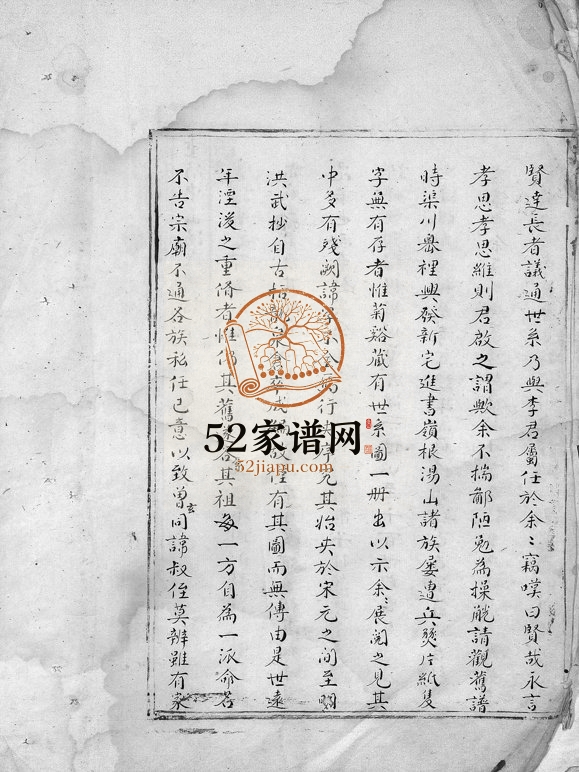 賢達長者議通世系乃與李君屬任於余〻竊嘆曰賢哉永言
孝思孝思維則君啟之謂歟余不揣鄙陋勉為操觚請觀舊譜
時渠川裡興發新宅進書嶺根湯山諸族屢遭兵燹片紙隻
字無有存者惟菊谿藏有世系圖一冊出以示余〻展閱之見其
中多有殘闕諱行失序兄其始失於宋元之間至明
洪武抄自古有其圖而無傳由是世遠
年湮後之重脩者惟仍其舊其祖每一方自為一派俞若
不告宗廟不通各族私任已意以致曾玄同諱叔侄莫辨雖有家
52家谱网
52jiapu.com